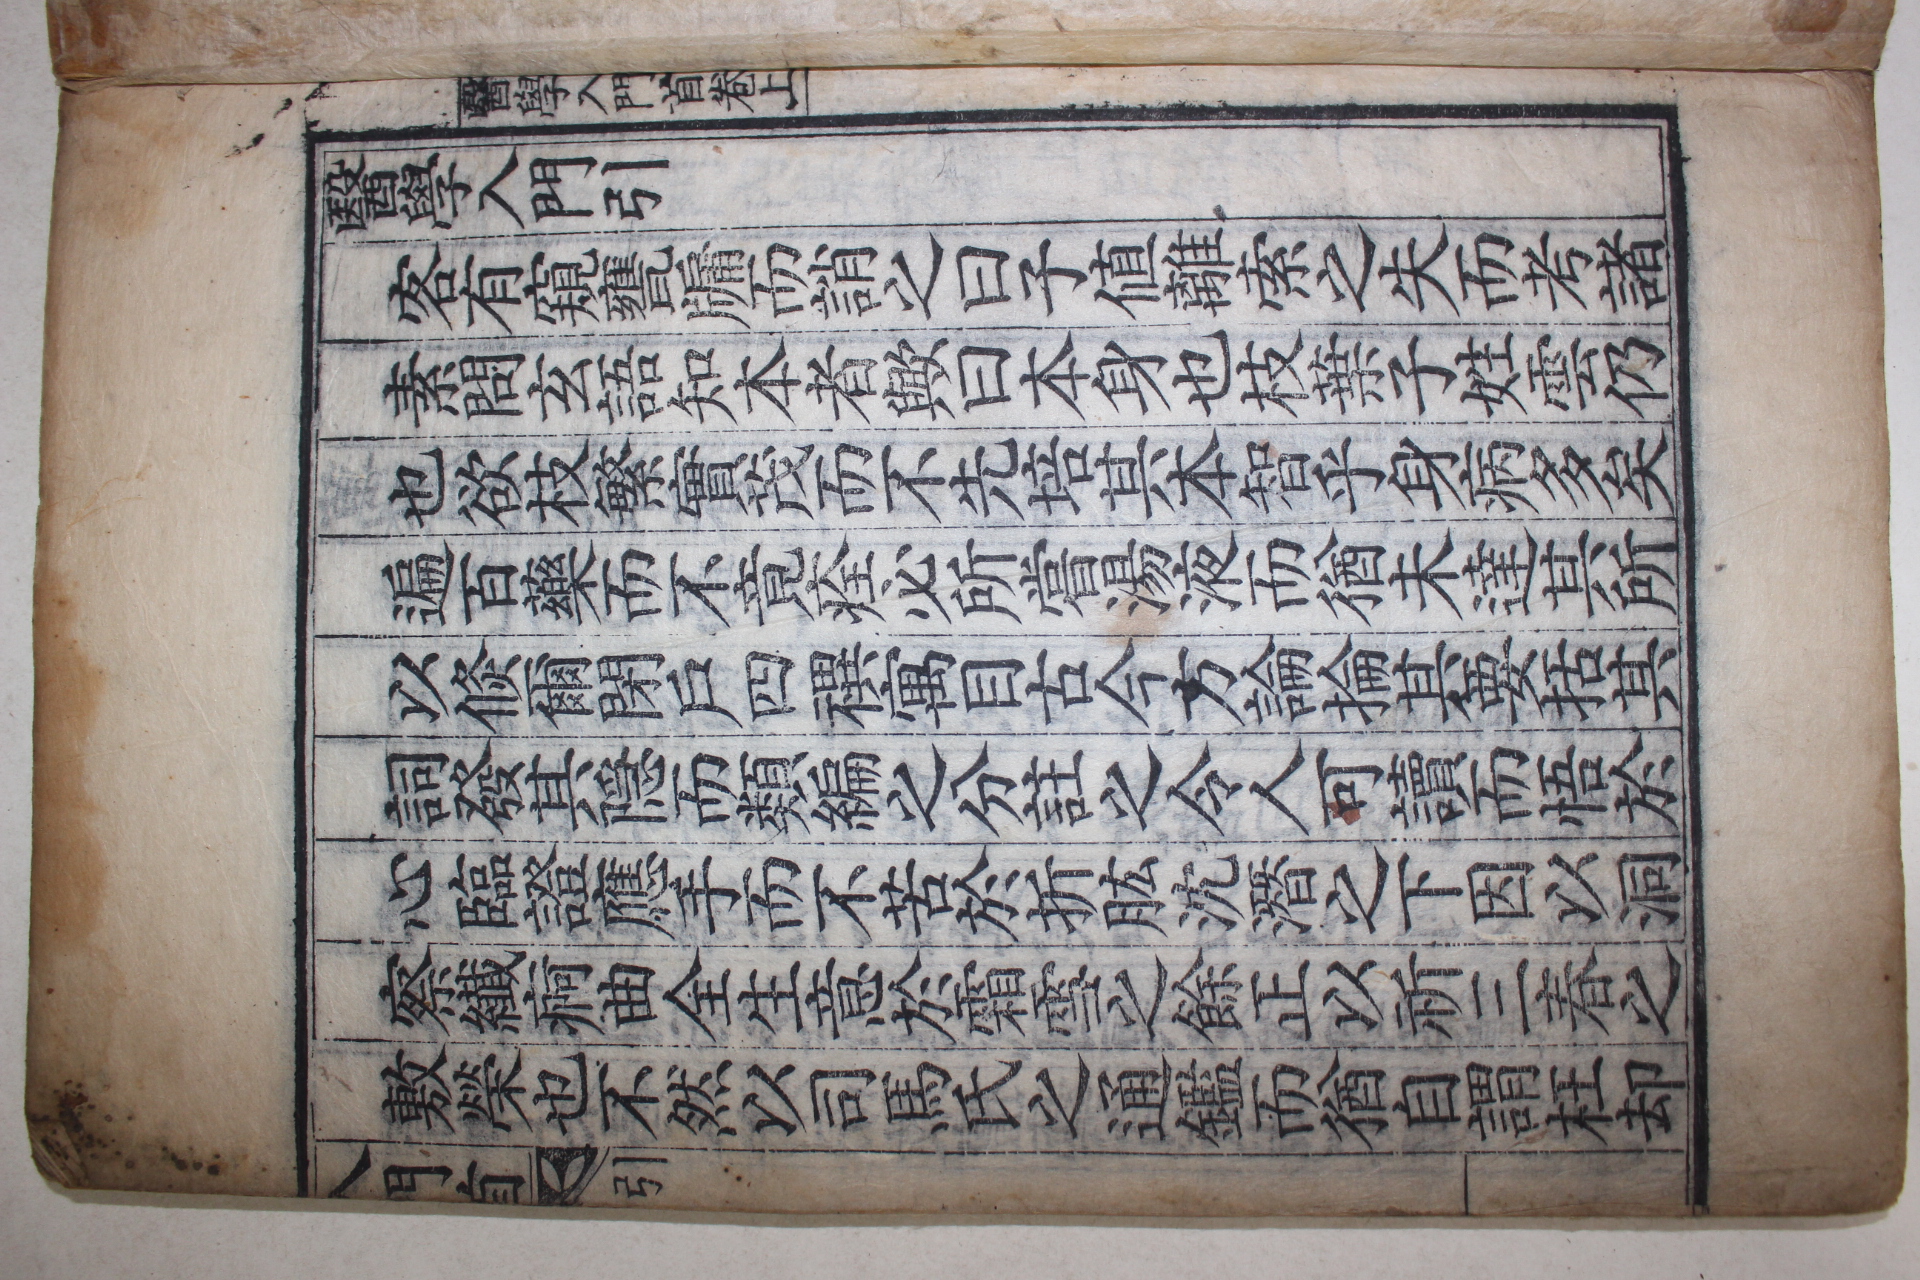 醫學入門首卷上
醫學入門引
客有窺甕牖而誚之曰子值離索之失而考諸
素問玄語知本者歟曰本身也枝葉子姓雲仍
也欲枝繁實茂而不先培其本智乎身病多矣
遍百藥而不竟痊必所嘗湯液而猶未達其所
以倏爾閉戶四禩寓目古今方論掄其要括其
詞發其隱而類編之分註之令人可讀而悟於
心臨證應手而不苦於折肱沈潛之下因以洞
察纖痾由全生意於霜雪之餘止以祈三春之
敷榮也不然以司馬氏之通鑑而猶自謂枉却
入門首 引